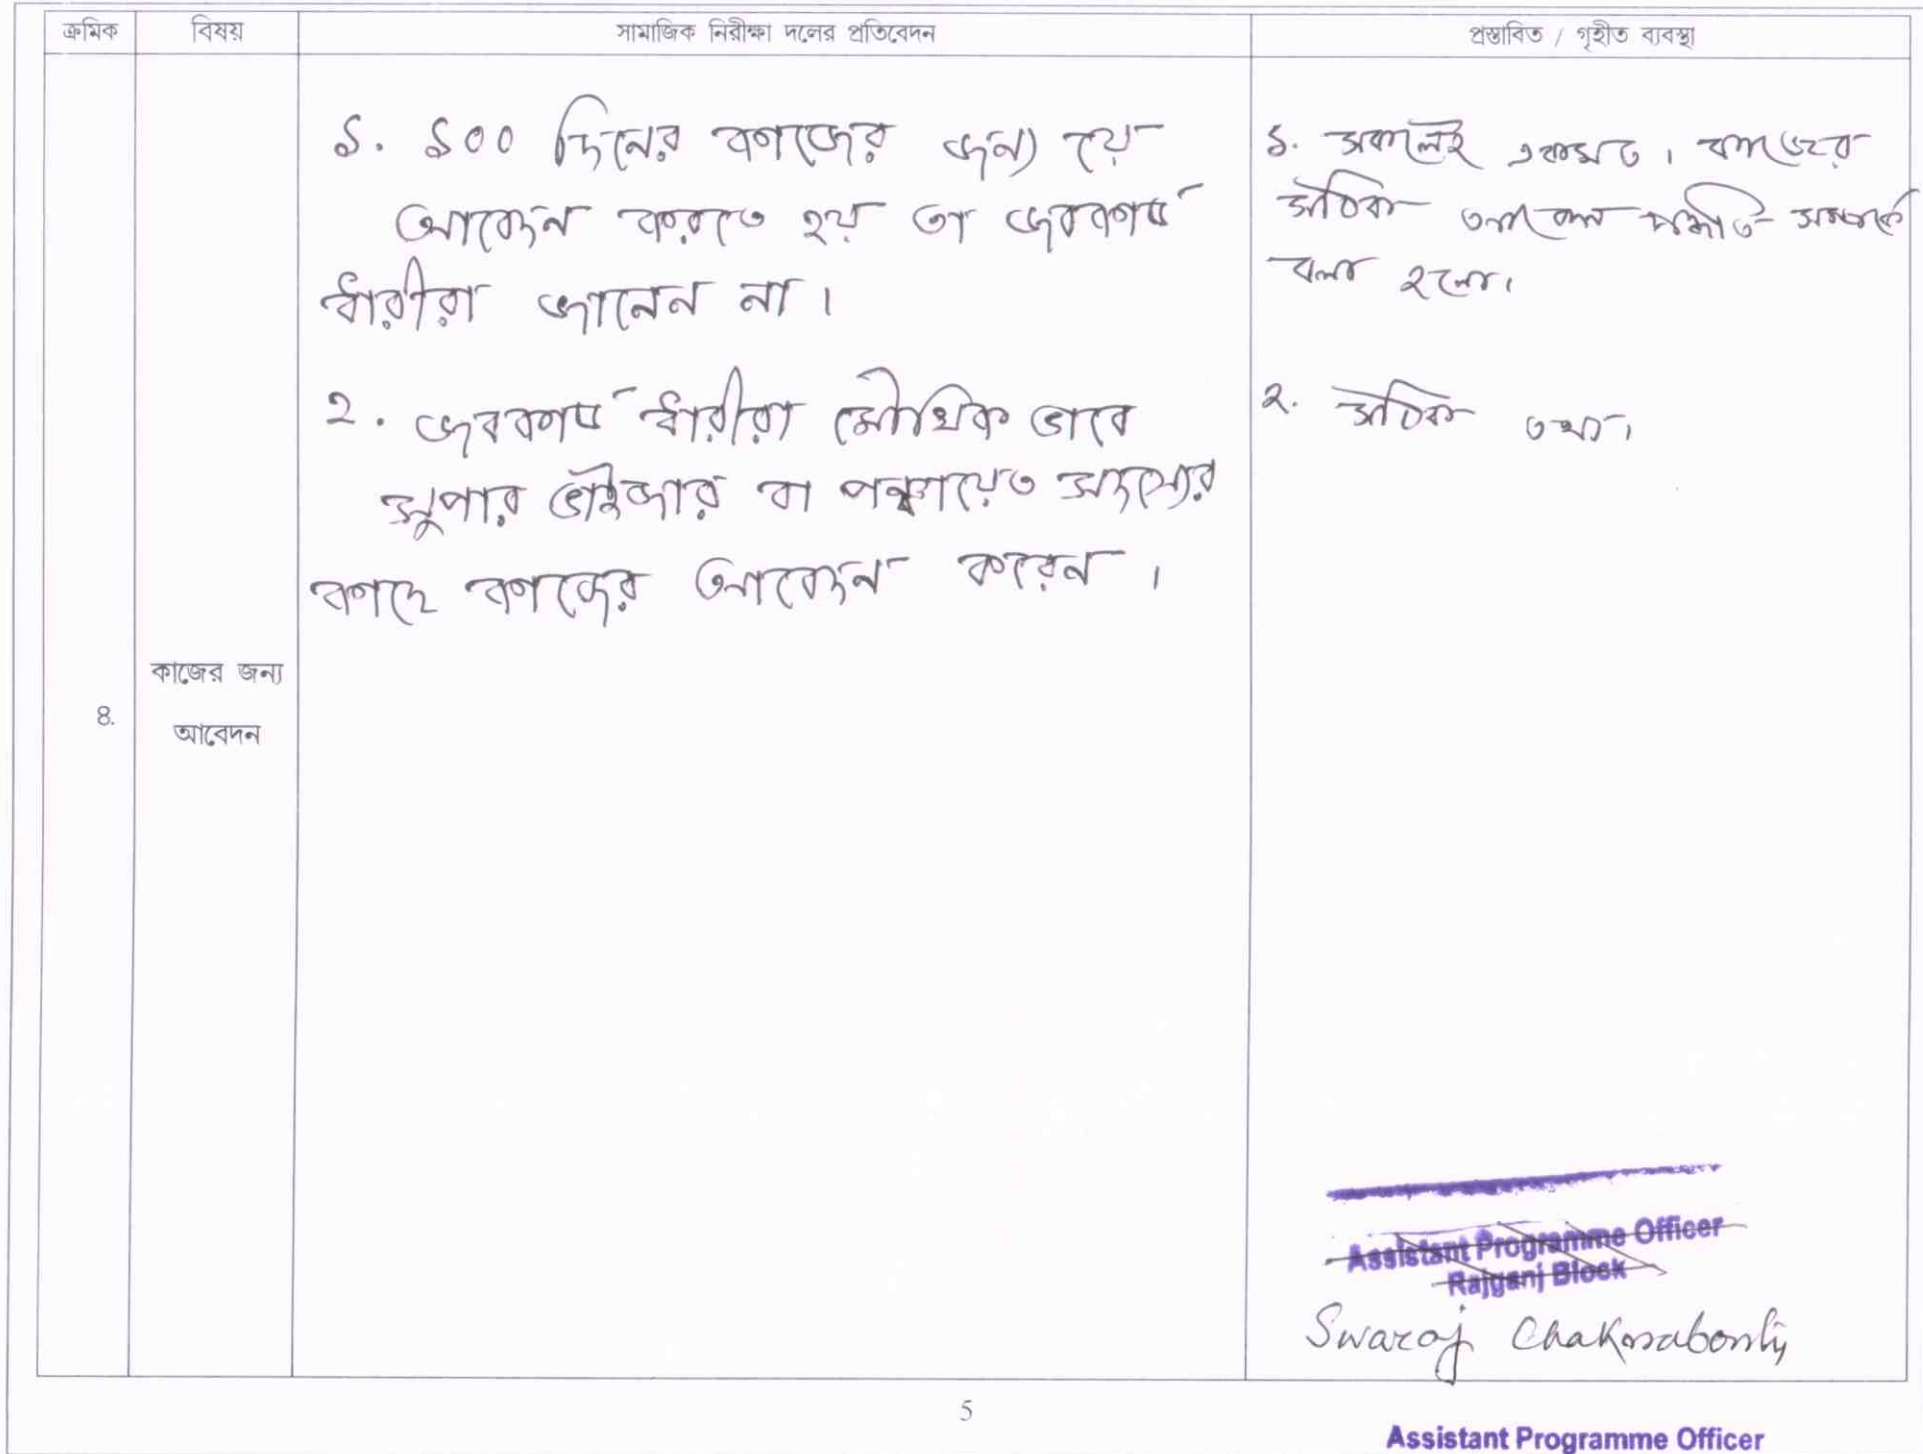 ক্রমিক বিষয় সামাজিক নিরীক্ষা দলের প্রতিবেদন প্রস্তাবিত / গৃহীত ব্যবস্থা
১. ১০০ দিনের কাজের জন্য যে
আবেদন করতে হয় তা জবকার্ড
ধারীরা জানেন না।
২. জবকার্ড ধারীরা মৌখিক ভাবে
সুপার ভাইজার বা পঞ্চায়েত সদস্যের
কাছে কাজের আবেদন করেন।
১. সকলেই একমত। কাজের
সঠিক আবেদন পদ্ধতি সম্পর্কে
বলা হলো।
২. সঠিক তথ্য।
৪.
কাজের জন্য
আবেদন
Assistant Programme Officer
Rajganj Block
Swaraj Chakraborty
5
Assistant Programme Officer